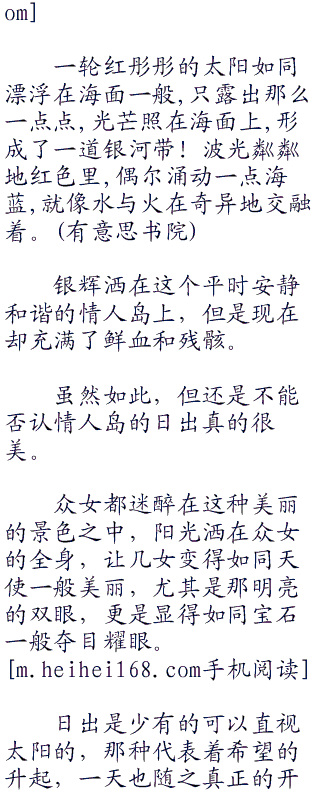 om]
一轮红彤彤的太阳如同
漂浮在海面一般,只露出那么
一点点,光芒照在海面上,形
成了一道银河带！波光粼粼
地红色里,偶尔涌动一点海
蓝,就像水与火在奇异地交融
着。(有意思书院)
银辉洒在这个平时安静
和谐的情人岛上，但是现在
却充满了鲜血和残骸。
虽然如此，但还是不能
否认情人岛的日出真的很
美。
众女都迷醉在这种美丽
的景色之中，阳光洒在众女
的全身，让几女变得如同天
使一般美丽，尤其是那明亮
的双眼，更是显得如同宝石
一般夺目耀眼。
[m.heihei168.com手机阅读]
日出是少有的可以直视
太阳的，那种代表着希望的
升起，一天也随之真正的开